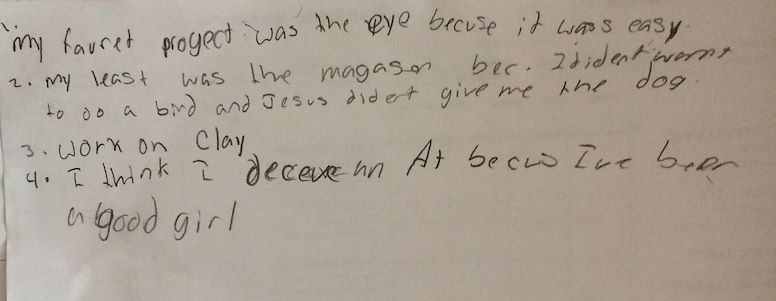 1. my favret proyect was the eye becuse it wass easy.
2. my least was the magason bec. I dident wornt
to do a bird and Jesus didert give me the dog.
3. Work on Clay
4. I think I deceve an At becus I've been
a good girl